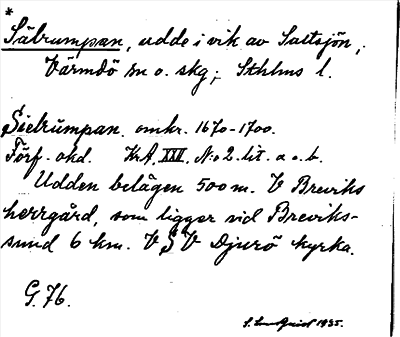 *
Sälrumpan, udde i vik av Saltsjön,
Värmdö sn o. skg; Sthlms l.
Sielrumpan. omkr. 1670-1700.
Förf. okd. KrA. XXI. No 2. lit. a o. b.
Udden belägen 500 m. V Breviks
herrgård, som ligger vid Breviks-
sund 6 km. V S V Djurö kyrka.
G. 76.
S. Lundquist 1935.